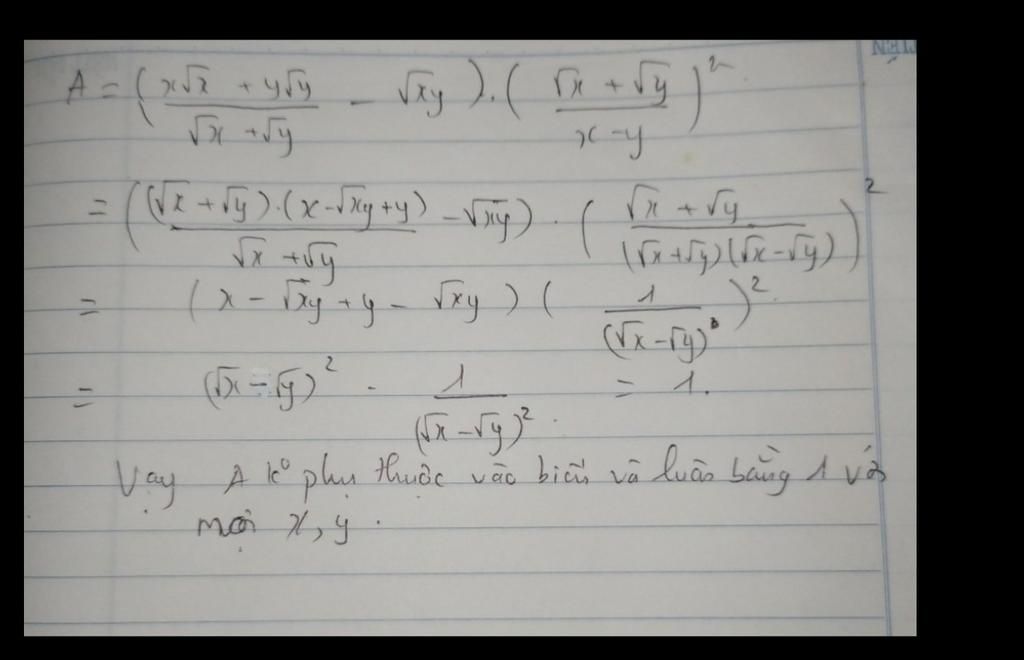 A = ( (x√x + y√y)/(√x + √y) − √xy ) . ( (√x + √y)/(x − y) )²
= ( ((√x + √y).(x − √xy + y))/(√x + √y) − √xy ) . ( (√x + √y)/((√x + √y)(√x − √y)) )²
= ( x − √xy + y − √xy ) ( 1/(√x − √y) )²
= (√x − √y)² . 1/(√x − √y)² = 1.
Vậy A k° phụ thuộc vào biến và luôn bằng 1 với
mọi x, y.